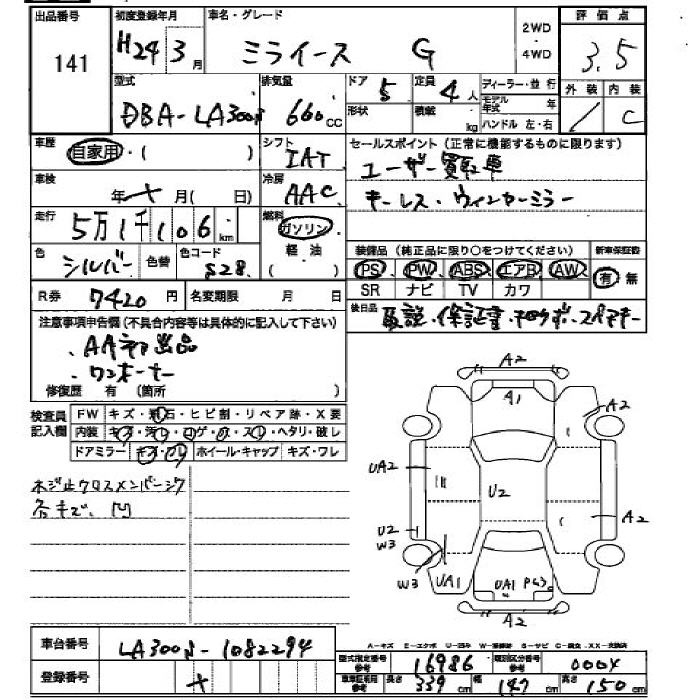 出品番号 初度登録年月 車名・グレード 2WD・4WD 評価点
141 H24 3月 ミライース G 3.5
型式 排気量 ドア 5 定員 4人 ディーラー・並行 外装 内装
DBA-LA300S 660cc 形状 積載 kg モデル年式 年 ハンドル 左・右 C
車歴 自家用・( ) シフト IAT セールスポイント(正常に機能するものに限ります)
車検 年 月( 日) 冷房 AAC ユーザー買取車
キーレス・ウィンカーミラー
走行 5万1千106km 燃料 ガソリン・軽油 ( )
色 シルバー 色替 色コード S28 装備品(純正品に限り○をつけてください) 新車保証書
PS PW ABS エアB AW 有・無
SR ナビ TV カワ
R券 7420円 名変期限 月 日 後日品 取説・保証書・スペアキー
注意事項申告欄(不具合内容等は具体的に記入して下さい)
・AA初出品
・ワンオーナー
修復歴 有 (箇所 )
検査員記入欄 FW キズ・飛石・ヒビ割・リペア跡・X要
内装 キズ・汚レ・コゲ・穴・スレ・ヘタリ・破レ
ドアミラー キズ・ワレ ホイール・キャップ キズ・ワレ
ネジ止クロスメンバージク
各キズ、凹
A2
A1
A2
UA2
U2
A2
U2
W3
W3
UA1
UA1 P43
A2
車台番号 LA300S-1082294
登録番号
型式指定番号 参考 16986 類別区分番号 参考 0004
車車証明用 参考 長さ 339cm 幅 147cm 高さ 150cm